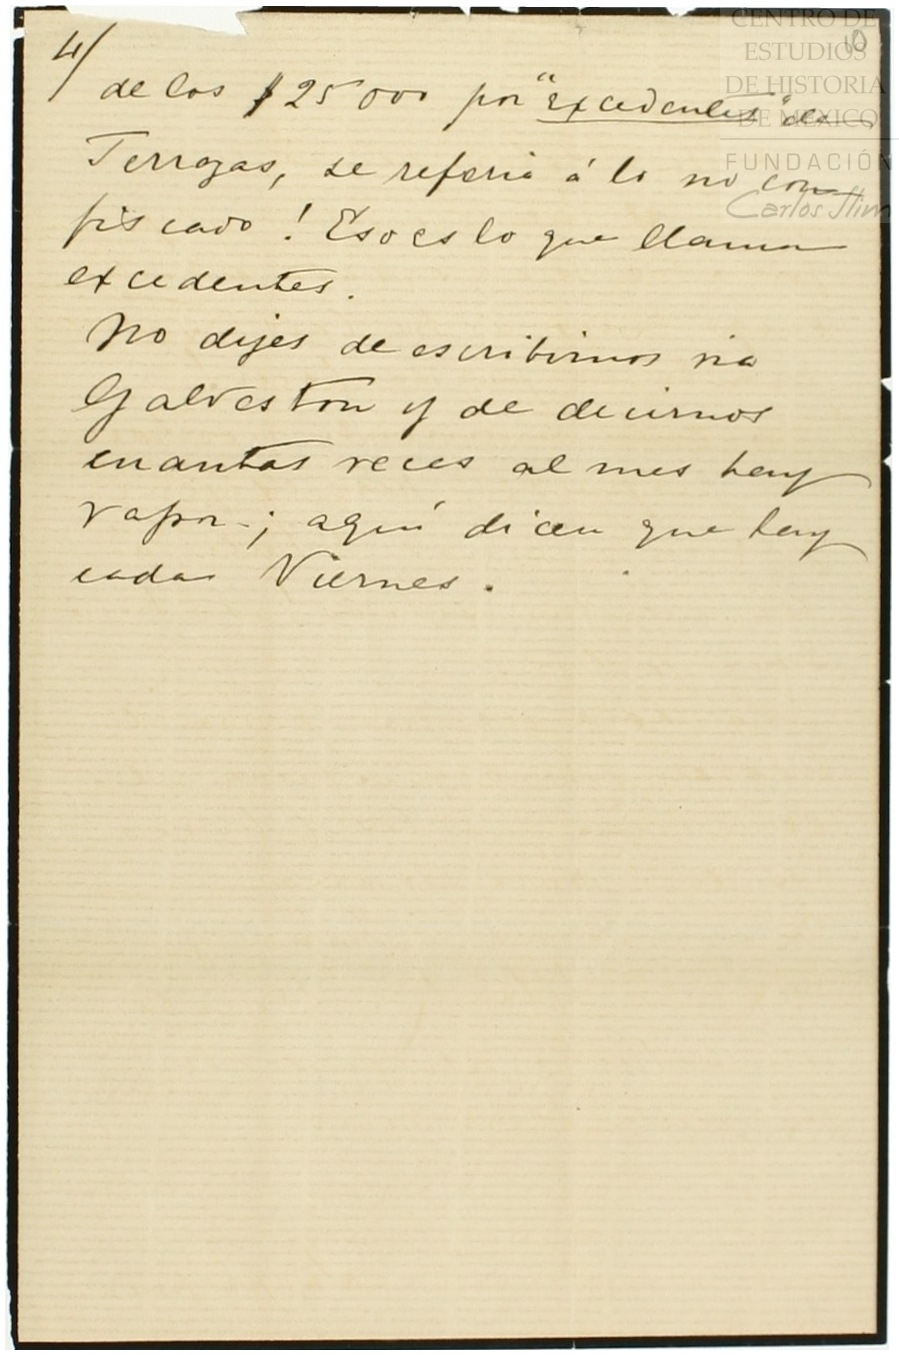 CENTRO DE
ESTUDIOS
DE HISTORIA
DE MEXICO
FUNDACIÓN
Carlos Slim
10
4/
de los $25000 por "excedentes" de
Terrazas, se referia á lo no con
fiscado! Eso es lo que llama
excedentes.
No dejes de escribirnos via
Galveston y de decirnos
cuantas veces al mes hay
vapor-; aquí dicen que hay
cada Viernes.